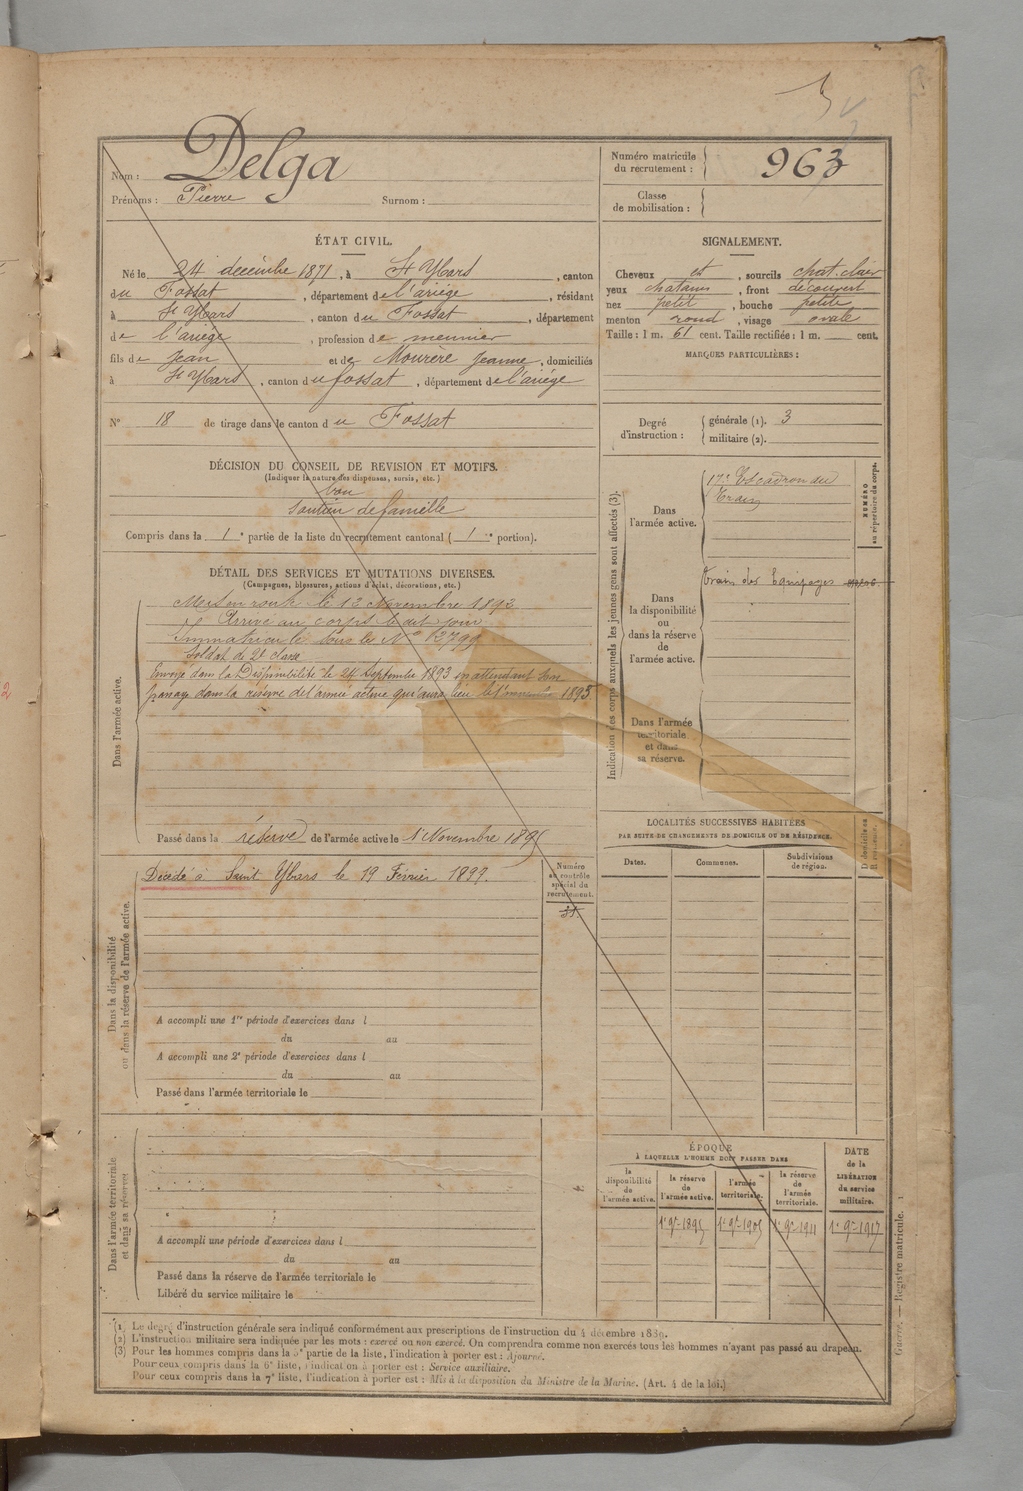 Nom : Delga
Prénoms : Pierre Surnom :
Numéro matricule du recrutement : 963
Classe de mobilisation :
ÉTAT CIVIL.
Né le 24 décembre 1871, à St Ybars, canton
du Fossat, département de l'ariège, résidant
à St Ybars, canton du Fossat, département
de l'ariège, profession de meunier
fils de Jean et de Mourère Jeanne, domiciliés
à St Ybars, canton du fossat, département de l'ariège
N° 18 de tirage dans le canton du Fossat
SIGNALEMENT.
Cheveux et, sourcils chat. clair
yeux chatains, front découvert
nez petit, bouche petite
menton rond, visage ovale
Taille : 1 m. 61 cent. Taille rectifiée : 1 m. cent.
MARQUES PARTICULIÈRES :
Degré d'instruction : générale (1). 3
militaire (2).
DÉCISION DU CONSEIL DE REVISION ET MOTIFS.
(Indiquer la nature des dispenses, sursis, etc.)
bon
soutien de famille
Compris dans la 1e partie de la liste du recrutement cantonal (1re portion).
DÉTAIL DES SERVICES ET MUTATIONS DIVERSES.
(Campagnes, blessures, actions d'éclat, décorations, etc.)
Dans l'armée active.
Mis en route le 12 Novembre 1892
Arrivé au corps le dit jour
Immatriculé sous le N°
Soldat de 2e classe
Envoyé dans la Disponibilité le 24 Septembre 1893 en attendant son
passage dans la réserve de l'armée active qui aura lieu le 1 novembre 1895
Passé dans la réserve de l'armée active le 1r Novembre 1895
Indication des corps auxquels les jeunes gens sont affectés (3).
Dans l'armée active.
17e Escadron du
Train
NUMÉRO au répertoire du corps.
Dans la disponibilité ou dans la réserve de l'armée active.
Train des Equipages
Dans l'armée territoriale et dans sa réserve.
Dans la disponibilité ou dans la réserve de l'armée active.
Décédé à Saint Ybars le 19 Février 1899.
Numéro au contrôle spécial du recrutement.
A accompli une 1re période d'exercices dans l
du au
A accompli une 2e période d'exercices dans l
du au
Passé dans l'armée territoriale le
LOCALITÉS SUCCESSIVES HABITÉES
PAR SUITE DE CHANGEMENTS DE DOMICILE OU DE RÉSIDENCE.
Dates. Communes. Subdivisions de région.
Dans l'armée territoriale et dans sa réserve.
A accompli une période d'exercices dans l
du au
Passé dans la réserve de l'armée territoriale le
Libéré du service militaire le
ÉPOQUE
À LAQUELLE L'HOMME DOIT PASSER DANS
la disponibilité de l'armée active.
la réserve de l'armée active.
l'armée territoriale.
la réserve de l'armée territoriale.
DATE de la LIBÉRATION du service militaire.
1r 9bre 1895 1r 9bre 1905 1r 9bre 1911 1r 9bre 1917
(1) Le degré d'instruction générale sera indiqué conformément aux prescriptions de l'instruction du 4 décembre 1889.
(2) L'instruction militaire sera indiquée par les mots : exercé ou non exercé. On comprendra comme non exercés tous les hommes n'ayant pas passé au drapeau.
(3) Pour les hommes compris dans la 5e partie de la liste, l'indication à porter est : Ajourné.
Pour ceux compris dans la 6e liste, l'indication à porter est : Service auxiliaire.
Pour ceux compris dans la 7e liste, l'indication à porter est : Mis à la disposition du Ministre de la Marine. (Art. 4 de la loi.)
Guerre. — Registre matricule. 1